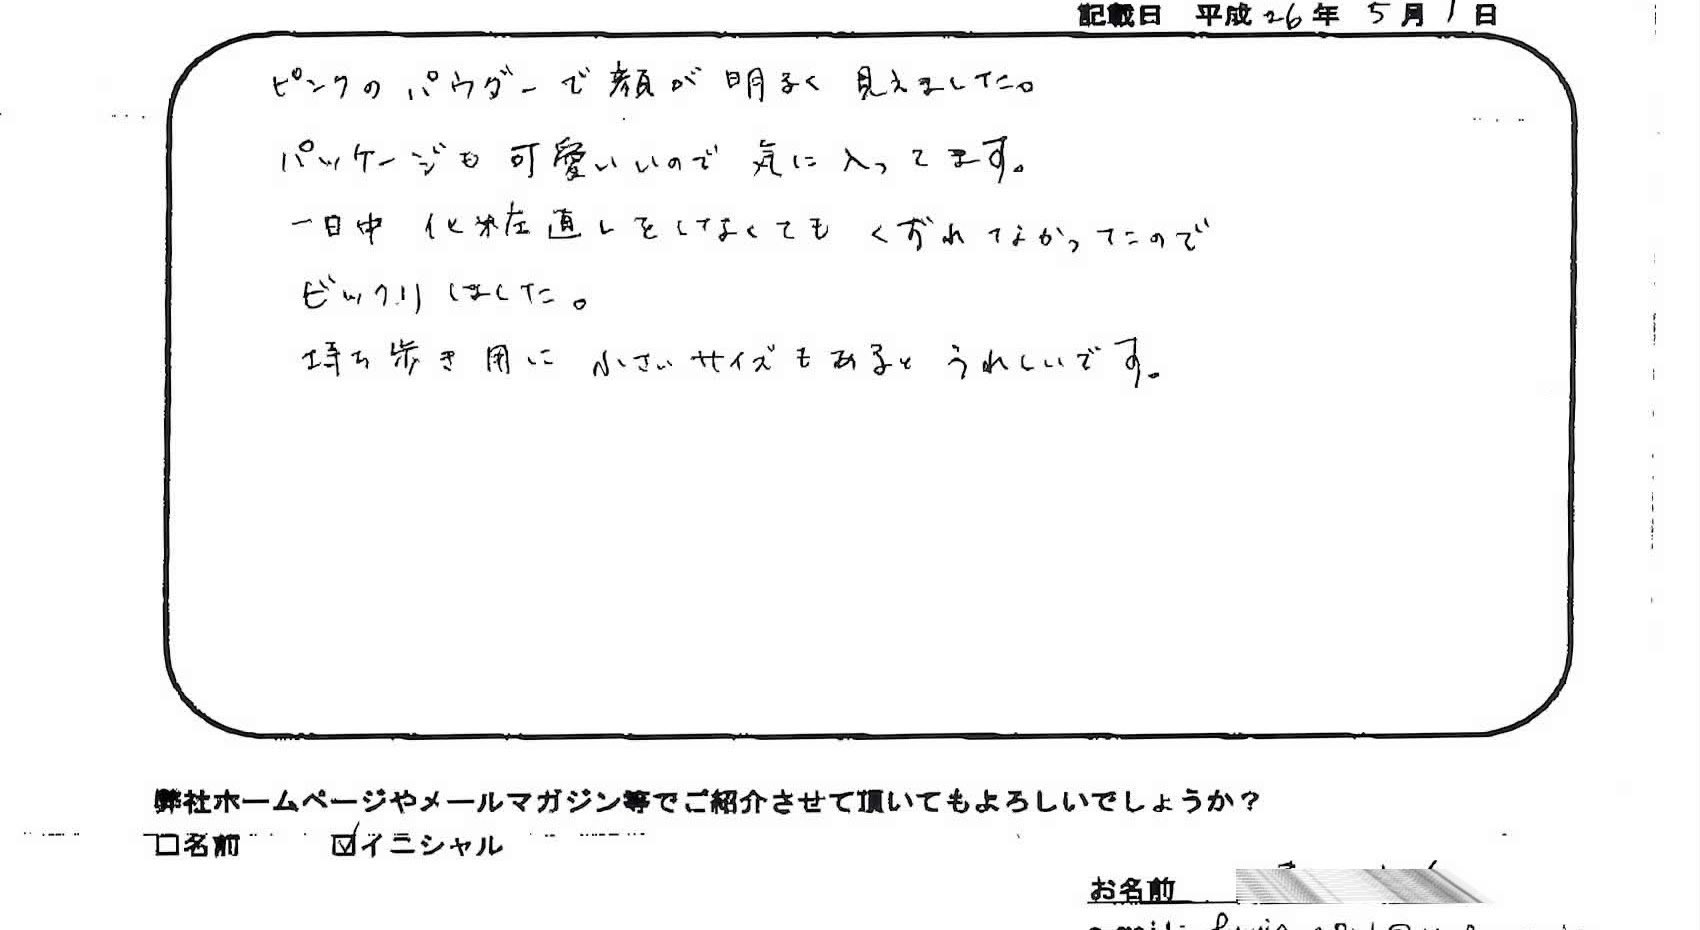 記載日 平成26年 5月 1日
ピンクのパウダーで顔が明るく見えました。
パッケージも可愛いいので気に入ってます。
一日中 化粧直しをしなくてもくずれてなかったので
ビックリしました。
持ち歩き用に小さいサイズもあるとうれしいです。
弊社ホームページやメールマガジン等でご紹介させて頂いてもよろしいでしょうか？
□名前 ☑イニシャル
お名前